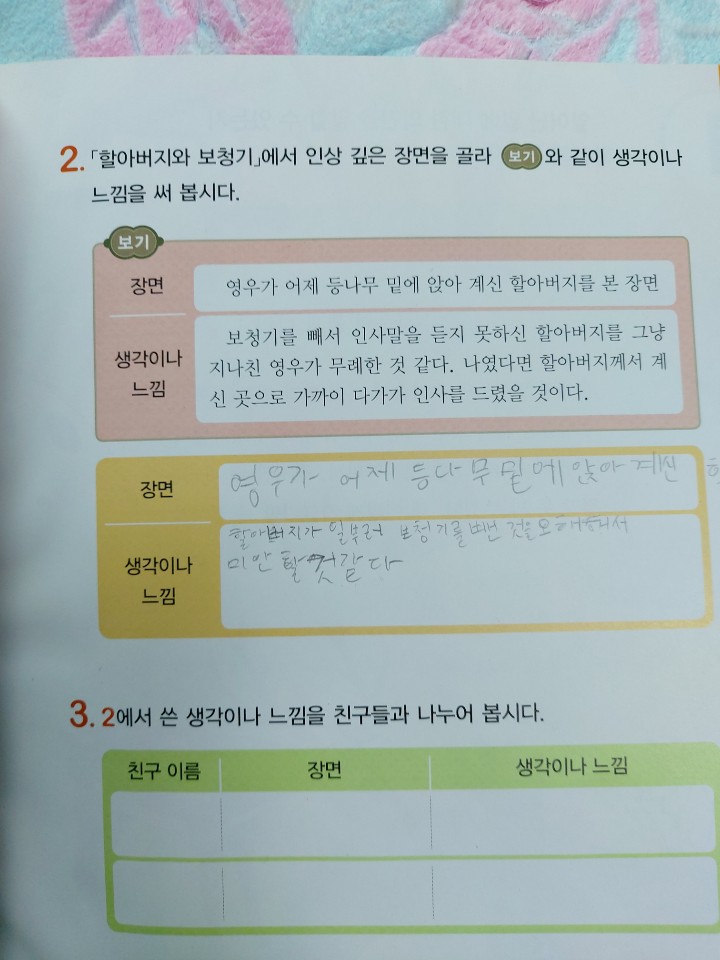 2. 「할아버지와 보청기」에서 인상 깊은 장면을 골라 보기 와 같이 생각이나
느낌을 써 봅시다.
보기
장면
영우가 어제 등나무 밑에 앉아 계신 할아버지를 본 장면
생각이나
느낌
보청기를 빼서 인사말을 듣지 못하신 할아버지를 그냥
지나친 영우가 무례한 것 같다. 나였다면 할아버지께서 계
신 곳으로 가까이 다가가 인사를 드렸을 것이다.
장면
영우가 어제 등나무 밑에 앉아 계신
생각이나
느낌
할아버지가 일부러 보청기를 뺀 것을 오해해서
미안할 것 같다
3. 2에서 쓴 생각이나 느낌을 친구들과 나누어 봅시다.
친구 이름 장면 생각이나 느낌